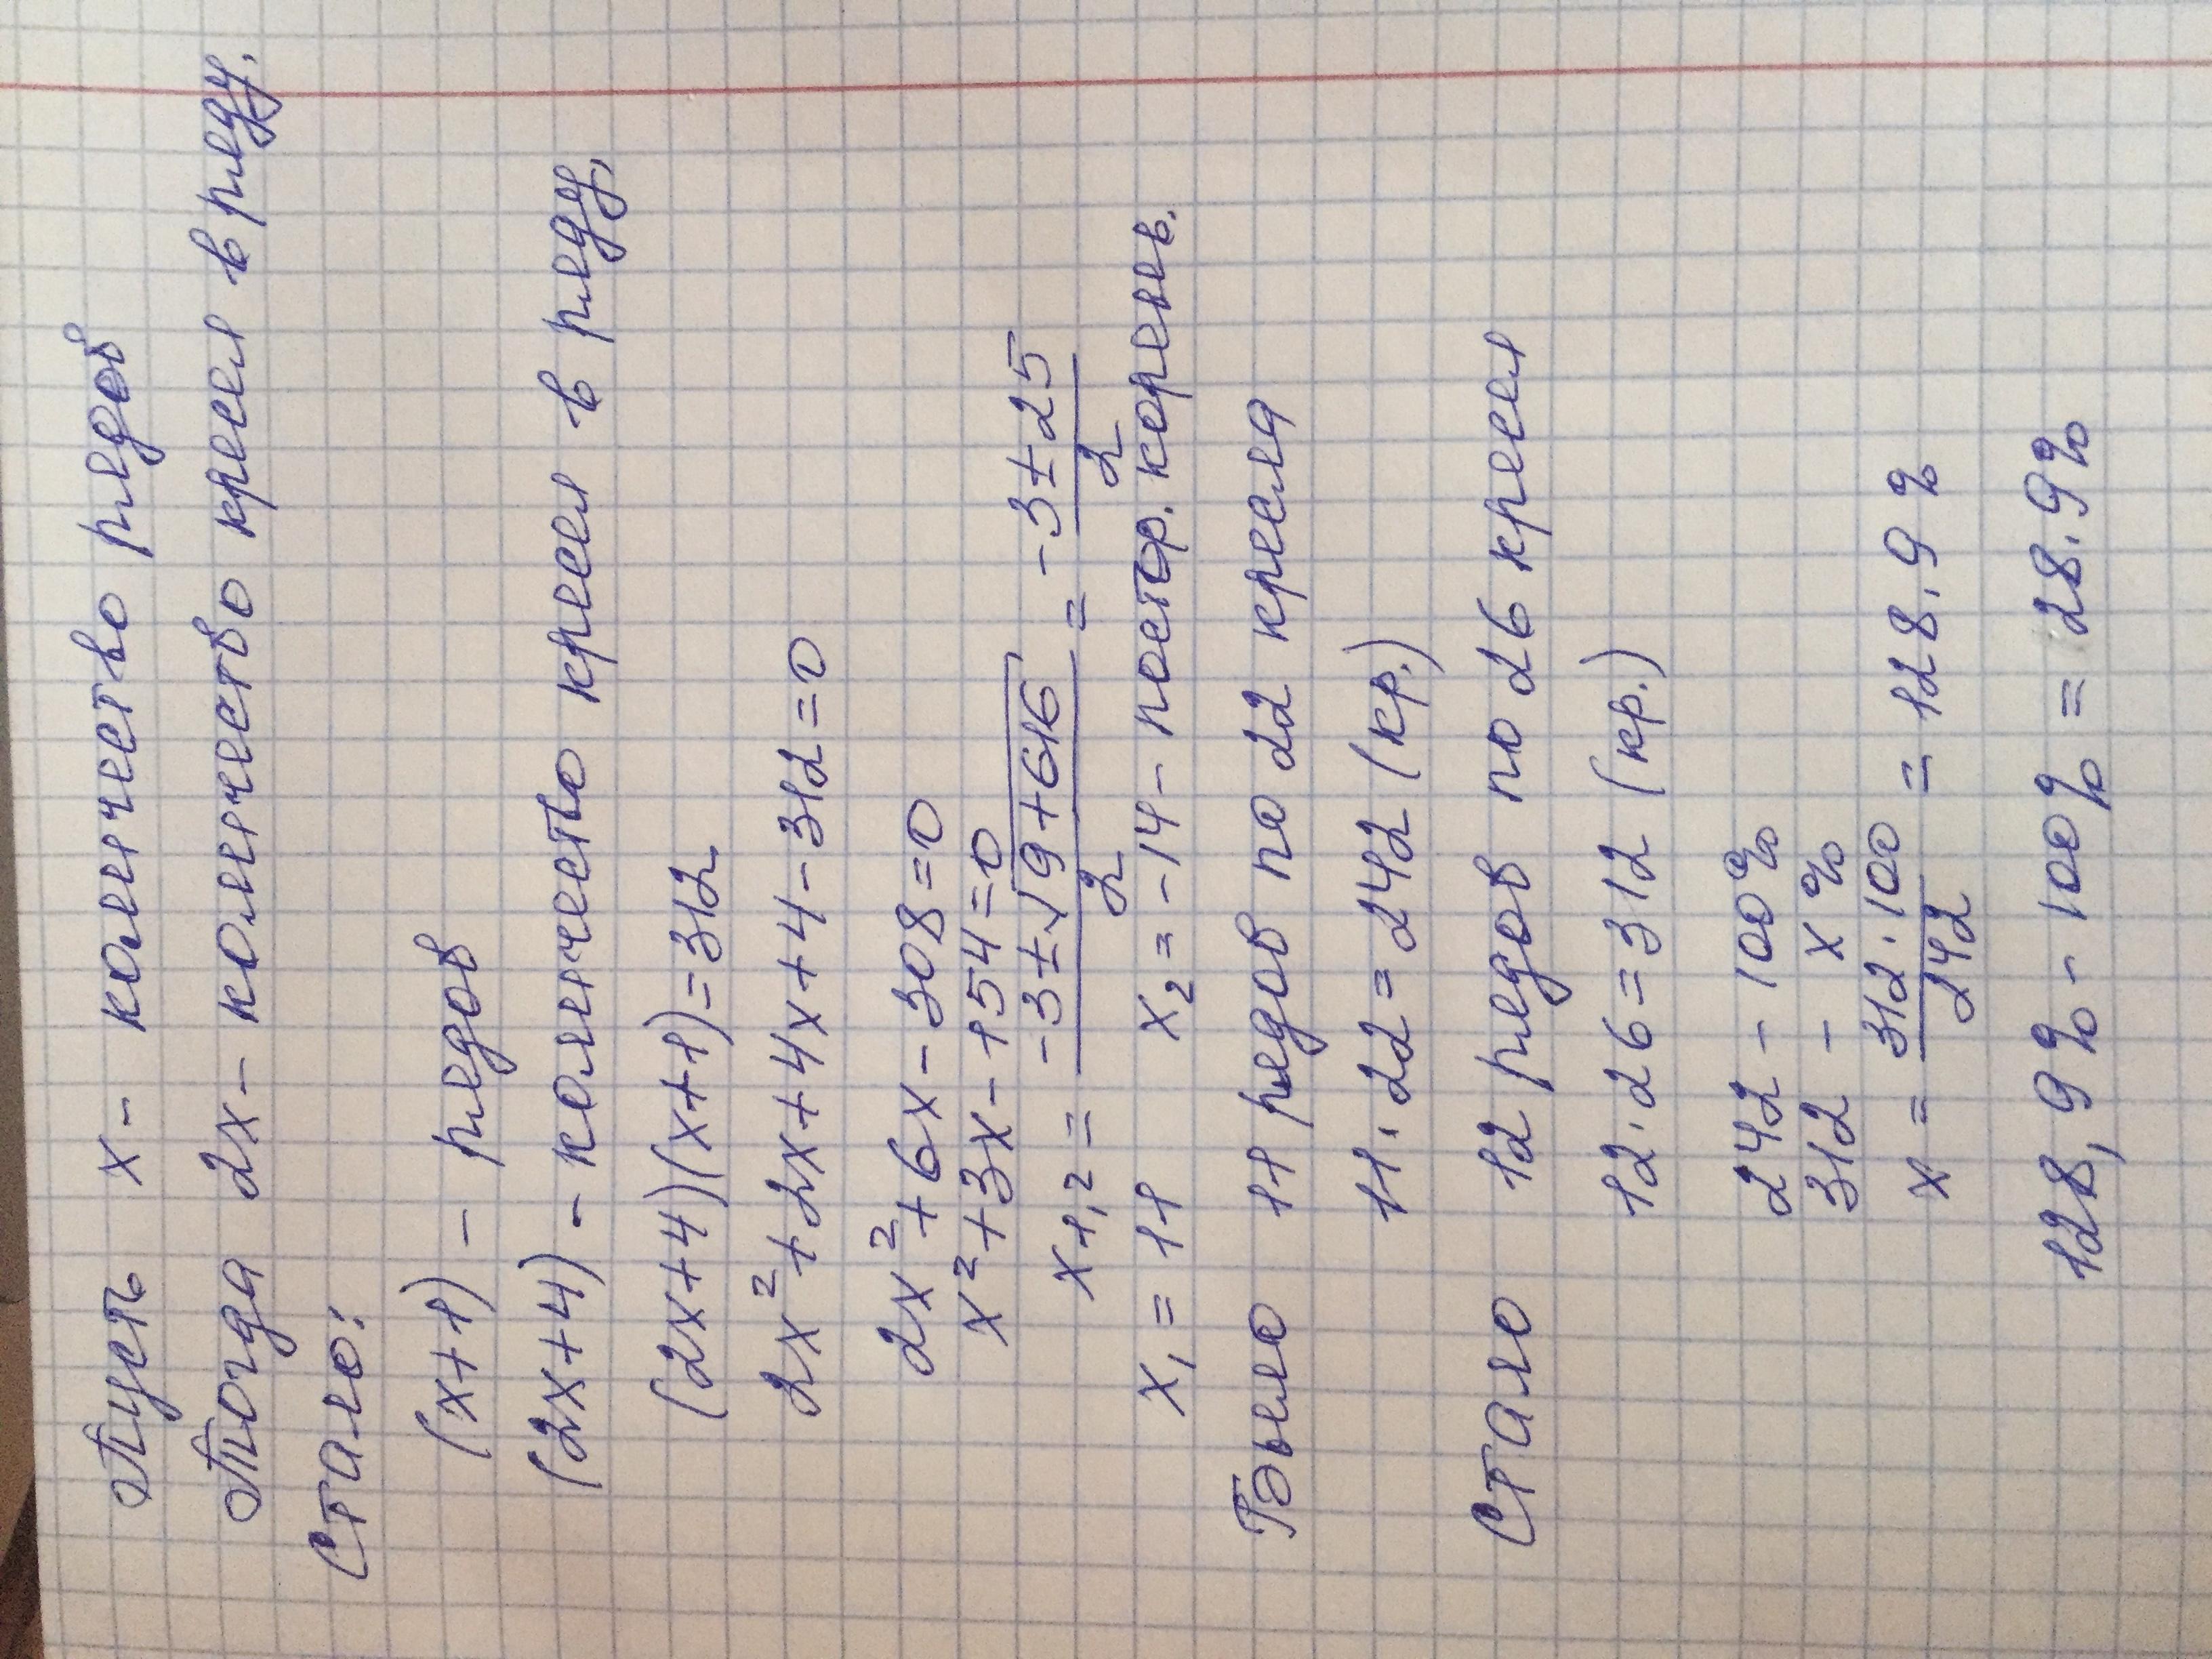 Пусть x - количество рядов
Тогда 2x - количество кресел в ряду.
Стало:
(x+1) - рядов
(2x+4) - количество кресел в ряду,
(2x+4)(x+1)=312
2x²+2x+4x+4-312=0
2x²+6x-308=0
x²+3x-154=0
x1,2 = (-3±√(9+616))/2 = (-3±25)/2
x₁ = 11 x₂ = -14 - постор. корень.
Было 11 рядов по 22 кресла
11·22=242 (кр.)
Стало 12 рядов по 26 кресел
12·26=312 (кр.)
242 - 100%
312 - x%
x = (312·100)/242 = 128,9%
128,9% - 100% = 28,9%